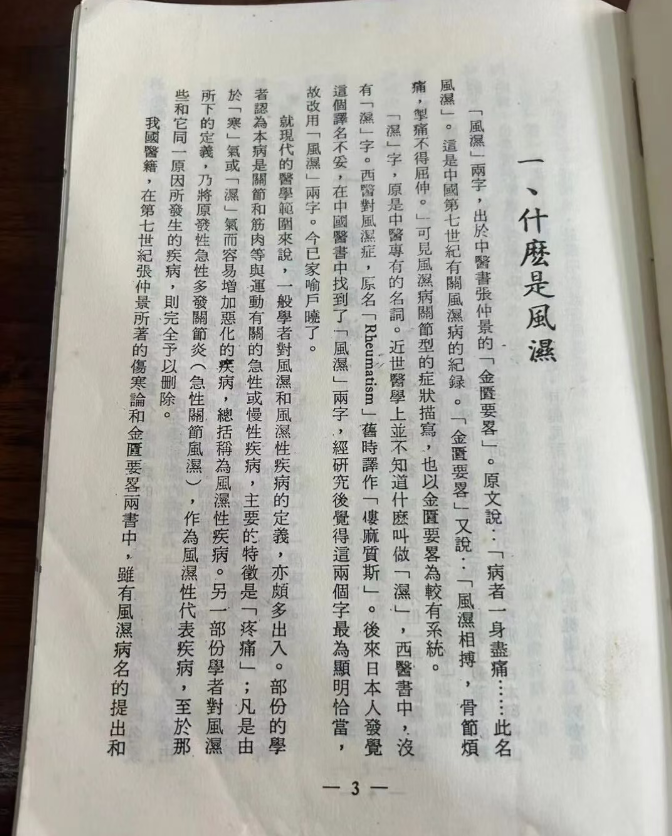 一、什麼是風濕
「風濕」兩字，出於中醫書張仲景的「金匱要畧」。原文說：「病者一身盡痛……此名
風濕」。這是中國第七世紀有關風濕病的紀録。「金匱要畧」又說：「風濕相搏，骨節煩
痛，掣痛不得屈伸。」可見風濕病關節型的症狀描寫，也以金匱要畧為較有系統。
「濕」字，原是中醫專有的名詞。近世醫學上並不知道什麽叫做「濕」，西醫書中，沒
有「濕」字。西醫對風濕症，原名「Rheumatism」舊時譯作「僂麻質斯」。後來日本人發覺
這個譯名不妥，在中國醫書中找到了「風濕」兩字，經研究後覺得這兩個字最為顯明恰當，
故改用「風濕」兩字。今已家喻戶曉了。
就現代的醫學範圍來說，一般學者對風濕和風濕性疾病的定義，亦頗多出入。部份的學
者認為本病是關節和筋肉等與運動有關的急性或慢性疾病，主要的特徵是「疼痛」；凡是由
於「寒」氣或「濕」氣而容易增加惡化的疾病，總括稱為風濕性疾病。另一部份學者對風濕
所下的定義，乃將原發性急性多發關節炎（急性關節風濕），作為風濕性代表疾病，至於那
些和它同一原因所發生的疾病，則完全予以刪除。
我國醫籍，在第七世紀張仲景所著的傷寒論和金匱要畧兩書中，雖有風濕病名的提出和
— 3 —